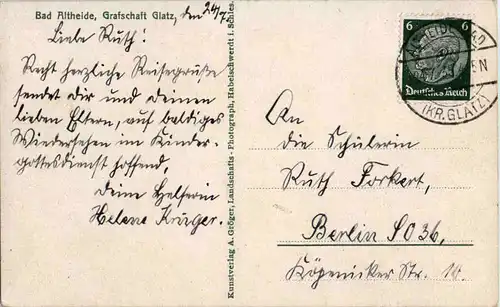 Bad Altheide, Grafschaft Glatz, den 24/7.
Liebe Ruth!
Recht herzliche Reisegrüße
sendet dir und deinen
lieben Eltern, auf baldiges
Wiedersehen im Kinder-
gottesdienst hoffend,
Deine Helferin
Helene Krüger.
Kunstverlag A. Gröger, Landschafts-Photograph, Habelschwerdt i. Schles.
6 6
Deutsches Reich
(KR. GLATZ)
An
die Schülerin
Ruth Forkert,
Berlin SO 36,
Köpenicker Str. 10.